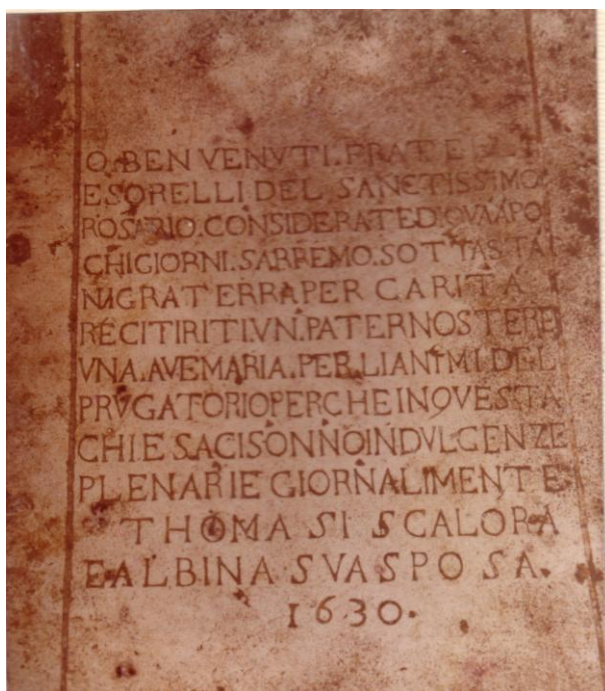 O. BEN VENVTI. FRATELLI
E SORELLI DEL SANCTISSIMO
ROSARIO. CONSIDERATE D. QVA A PO
CHI GIORNI. SARREMO. SOTTA STA
NIGRA TERRA PER CARITA
RECITIRITI. VN. PATERNOSTER E
VNA. AVEMARIA. PER. LI ANIMI DEL
PRVGATORIO PERCHE IN QVESTA
CHIESA CI SONNO INDVLGENZE
PLENARIE GIORNALIMENTE
THOMASI SCALORA
E ALBINA SVA SPOSA.
1630.